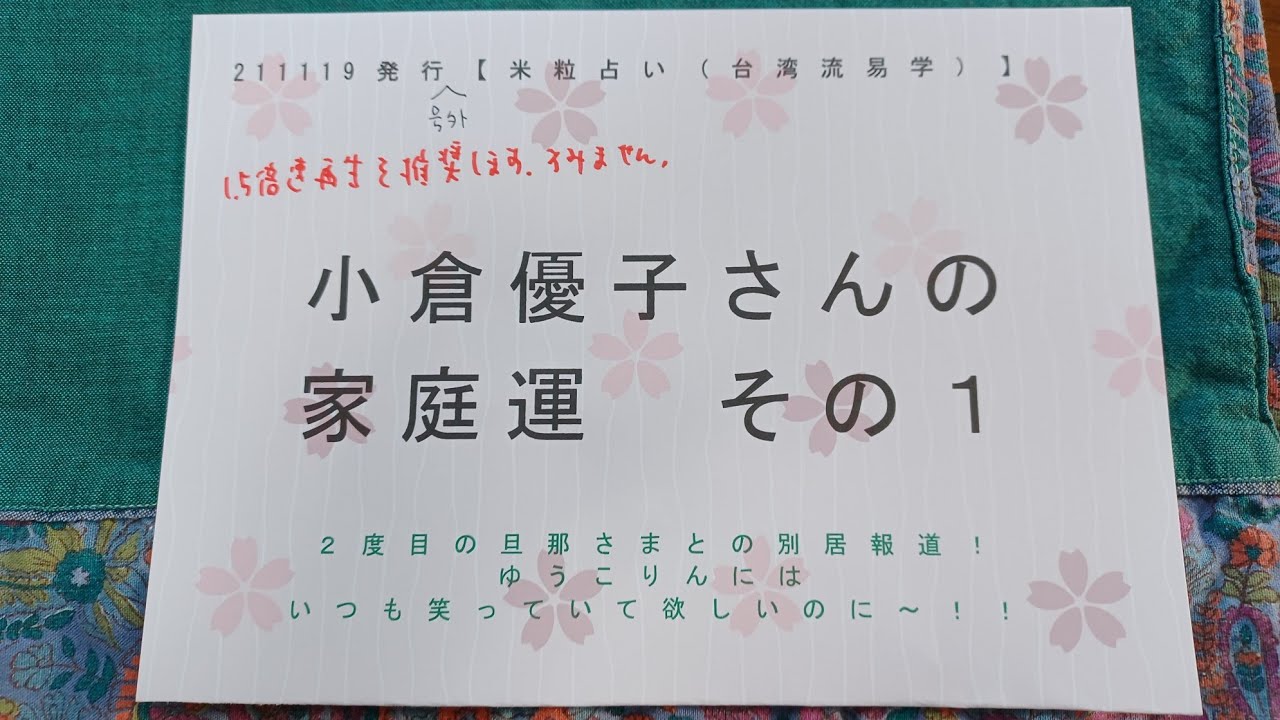 211119発行【米粒占い（台湾流易学）】
号外
1.5倍速再生を推奨します、すみません。
小倉優子さんの
家庭運 その1
2度目の旦那さまとの別居報道!
ゆうこりんには
いつも笑っていて欲しいのに~!!